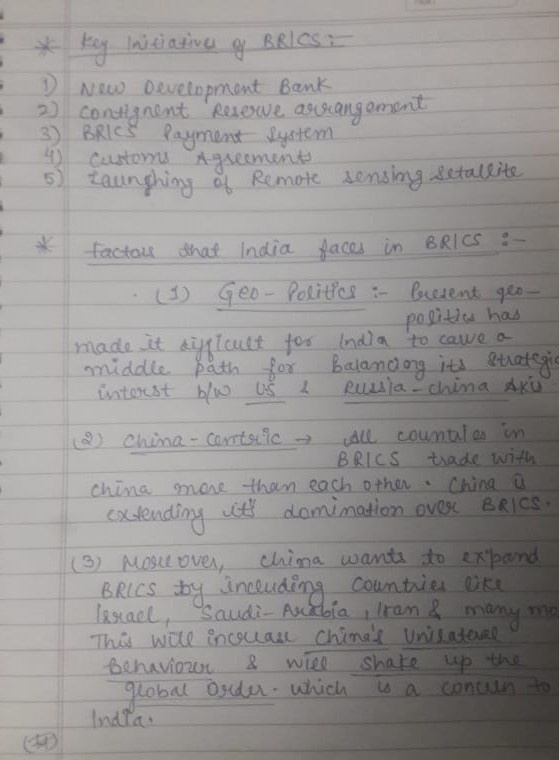 * Key Initiatives of BRICS:-
1) New Development Bank
2) Contignent Reserve arrangement
3) BRICS Payment System
4) Customs Agreements
5) Launching of Remote sensing Setallite
* factors that India faces in BRICS :-
(1) Geo-Politics :- Present geo-
politics has
made it difficult for India to carve a
middle path for Balancing its Strategic
interst b/w US & Russia-china Axis
(2) China-Centric → All countries in
BRICS trade with
china more than each other. China is
extending it's domination over BRICS.
(3) Moreover, China wants to expand
BRICS by including Countries like
Israel, Saudi-Arabia, Iran & many mo
This will increase China's Unilateral
Behaviour & will shake up the
global Order. which is a concern to
India.